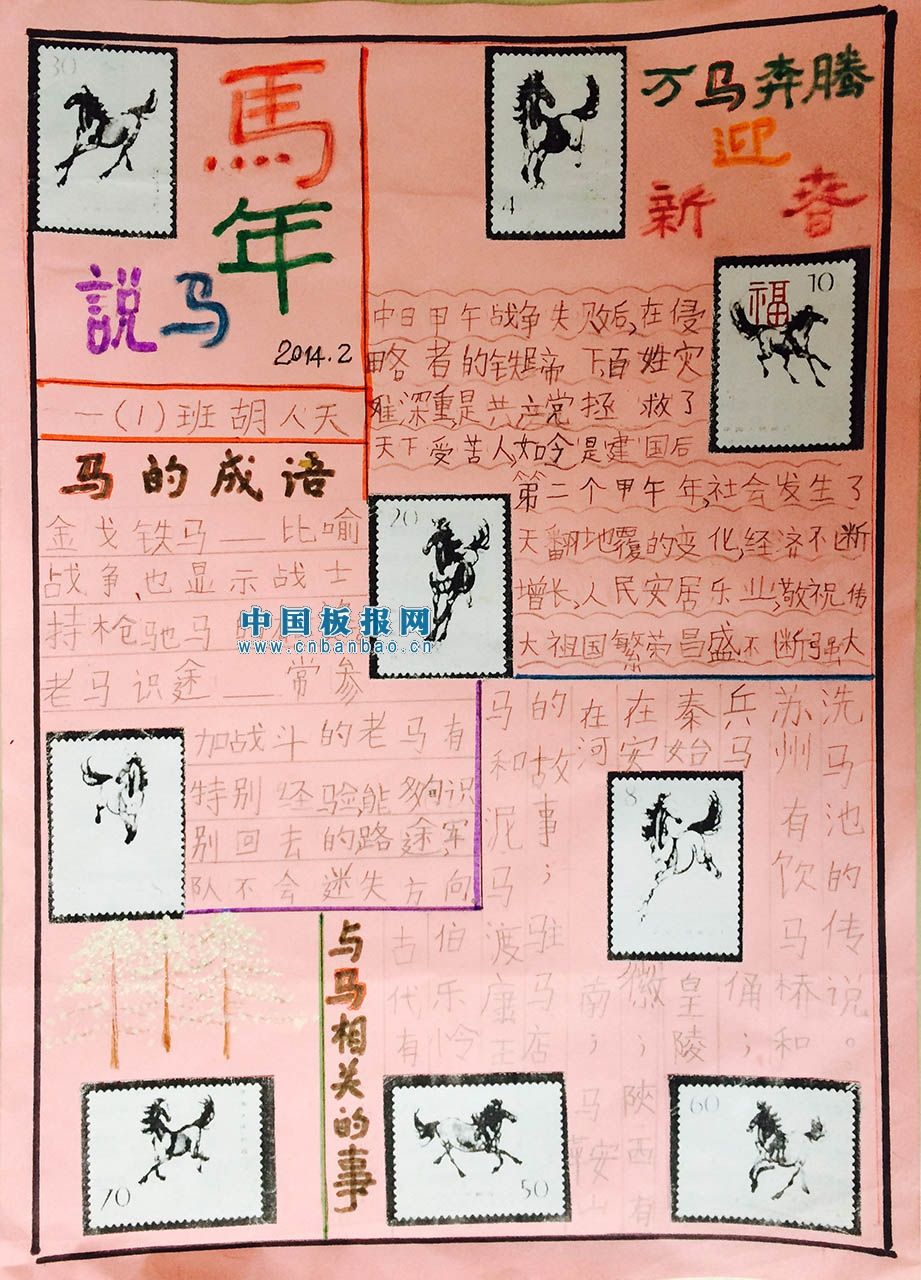 30
馬
年
説马
2014.2
一(1)班胡人天
4
万马奔腾
迎
新春
福 10
中日甲午战争失败后,在侵
略者的铁蹄下百姓灾
难深重,是共产党拯救了
天下受苦人,如今是建国后
第二个甲午年,社会发生了
天翻地覆的变化,经济不断
增长,人民安居乐业,敬祝伟
大祖国繁荣昌盛不断强大
马的成语
金戈铁马——比喻
战争,也显示战士
持枪驰马
老马识途——常参
加战斗的老马有
特别经验,能夠识
别回去的路途,军
队不会迷失方向
20
中国板报网
www.cnbanbao.cn
8
与马相关的事
古代有
伯乐怜
马和泥马渡康王
的故事；驻马店
在河南；马鞍山
在安徽；陝西有
秦始皇陵
兵马俑；
苏州有饮马桥和
洗马池的传说。
70
50
60